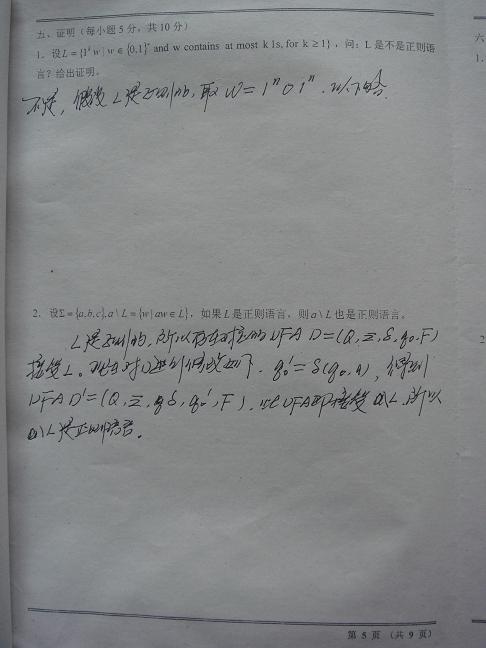 五、证明（每小题 5 分，共 10 分）
1. 设 L = {1ᵏ w | w ∈ {0,1}* and w contains at most k 1s, for k ≥ 1}，问：L 是不是正则语
言？给出证明。
不是，假设 L 是正则的，取 W = 1ⁿ 0 1ⁿ．以下略．
2. 设 Σ = {a,b,c}, a \ L = {w | aw ∈ L}，如果 L 是正则语言，则 a \ L 也是正则语言。
L是正则的，所以存在对应的 DFA D=(Q, Σ, δ, q₀, F)
接受 L。现在对D进行修改如下．q₀' = δ(q₀, a)，得到
DFA D'=(Q, Σ, δ, q₀', F)．此DFA即接受 a\L．所以
a\L是正则语言。
六
1.
2
第 5 页 （共 9 页）